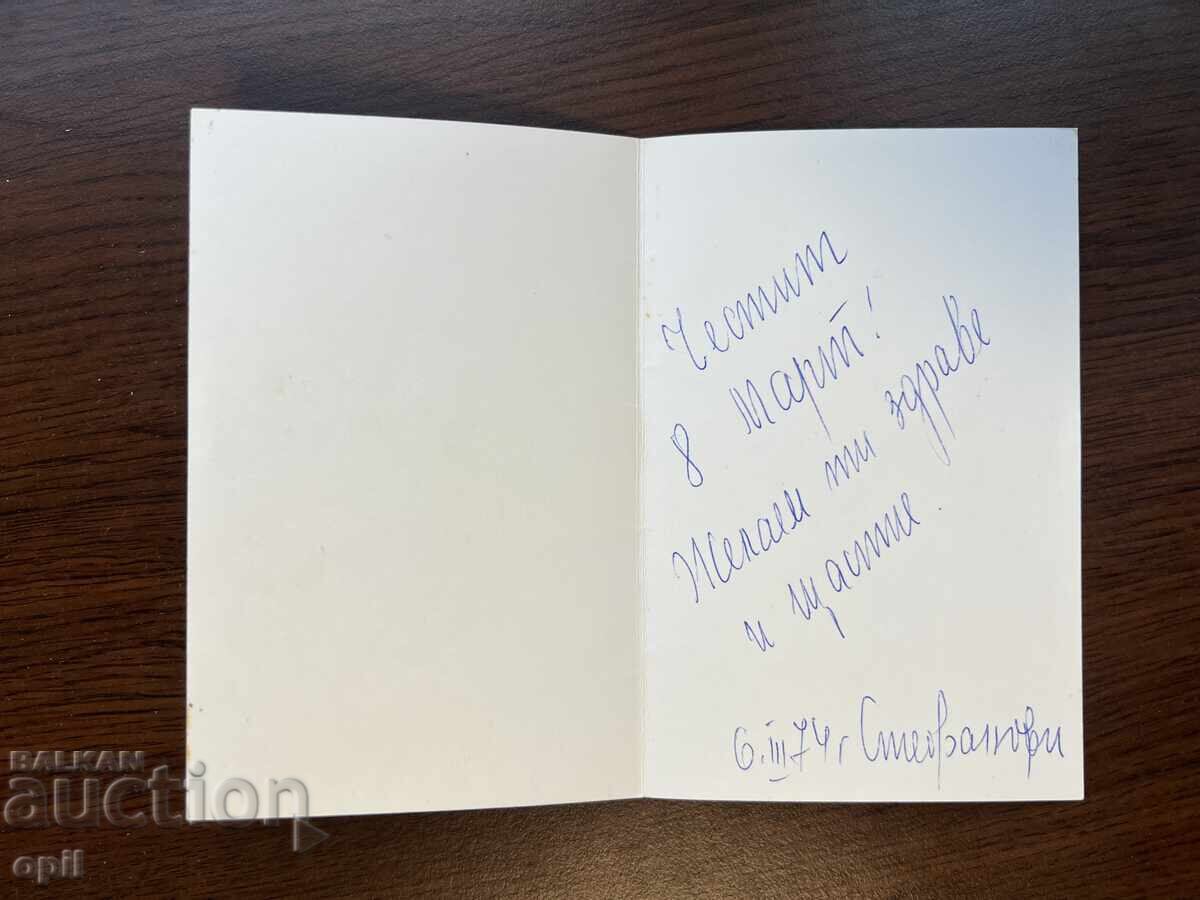 Честит
8 март!
Желаем ти здраве
и щастие.
6.III 74 г Стефанови
BALKAN
auction
opil